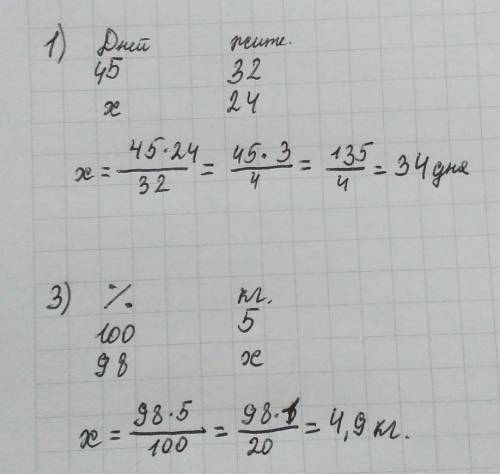 1) Дней жите.
45 32
х 24
х = 45·24/32 = 45·3/4 = 135/4 = 34 дня
3) % кг.
100 5
98 х
х = 98·5/100 = 98·1/20 = 4,9 кг.